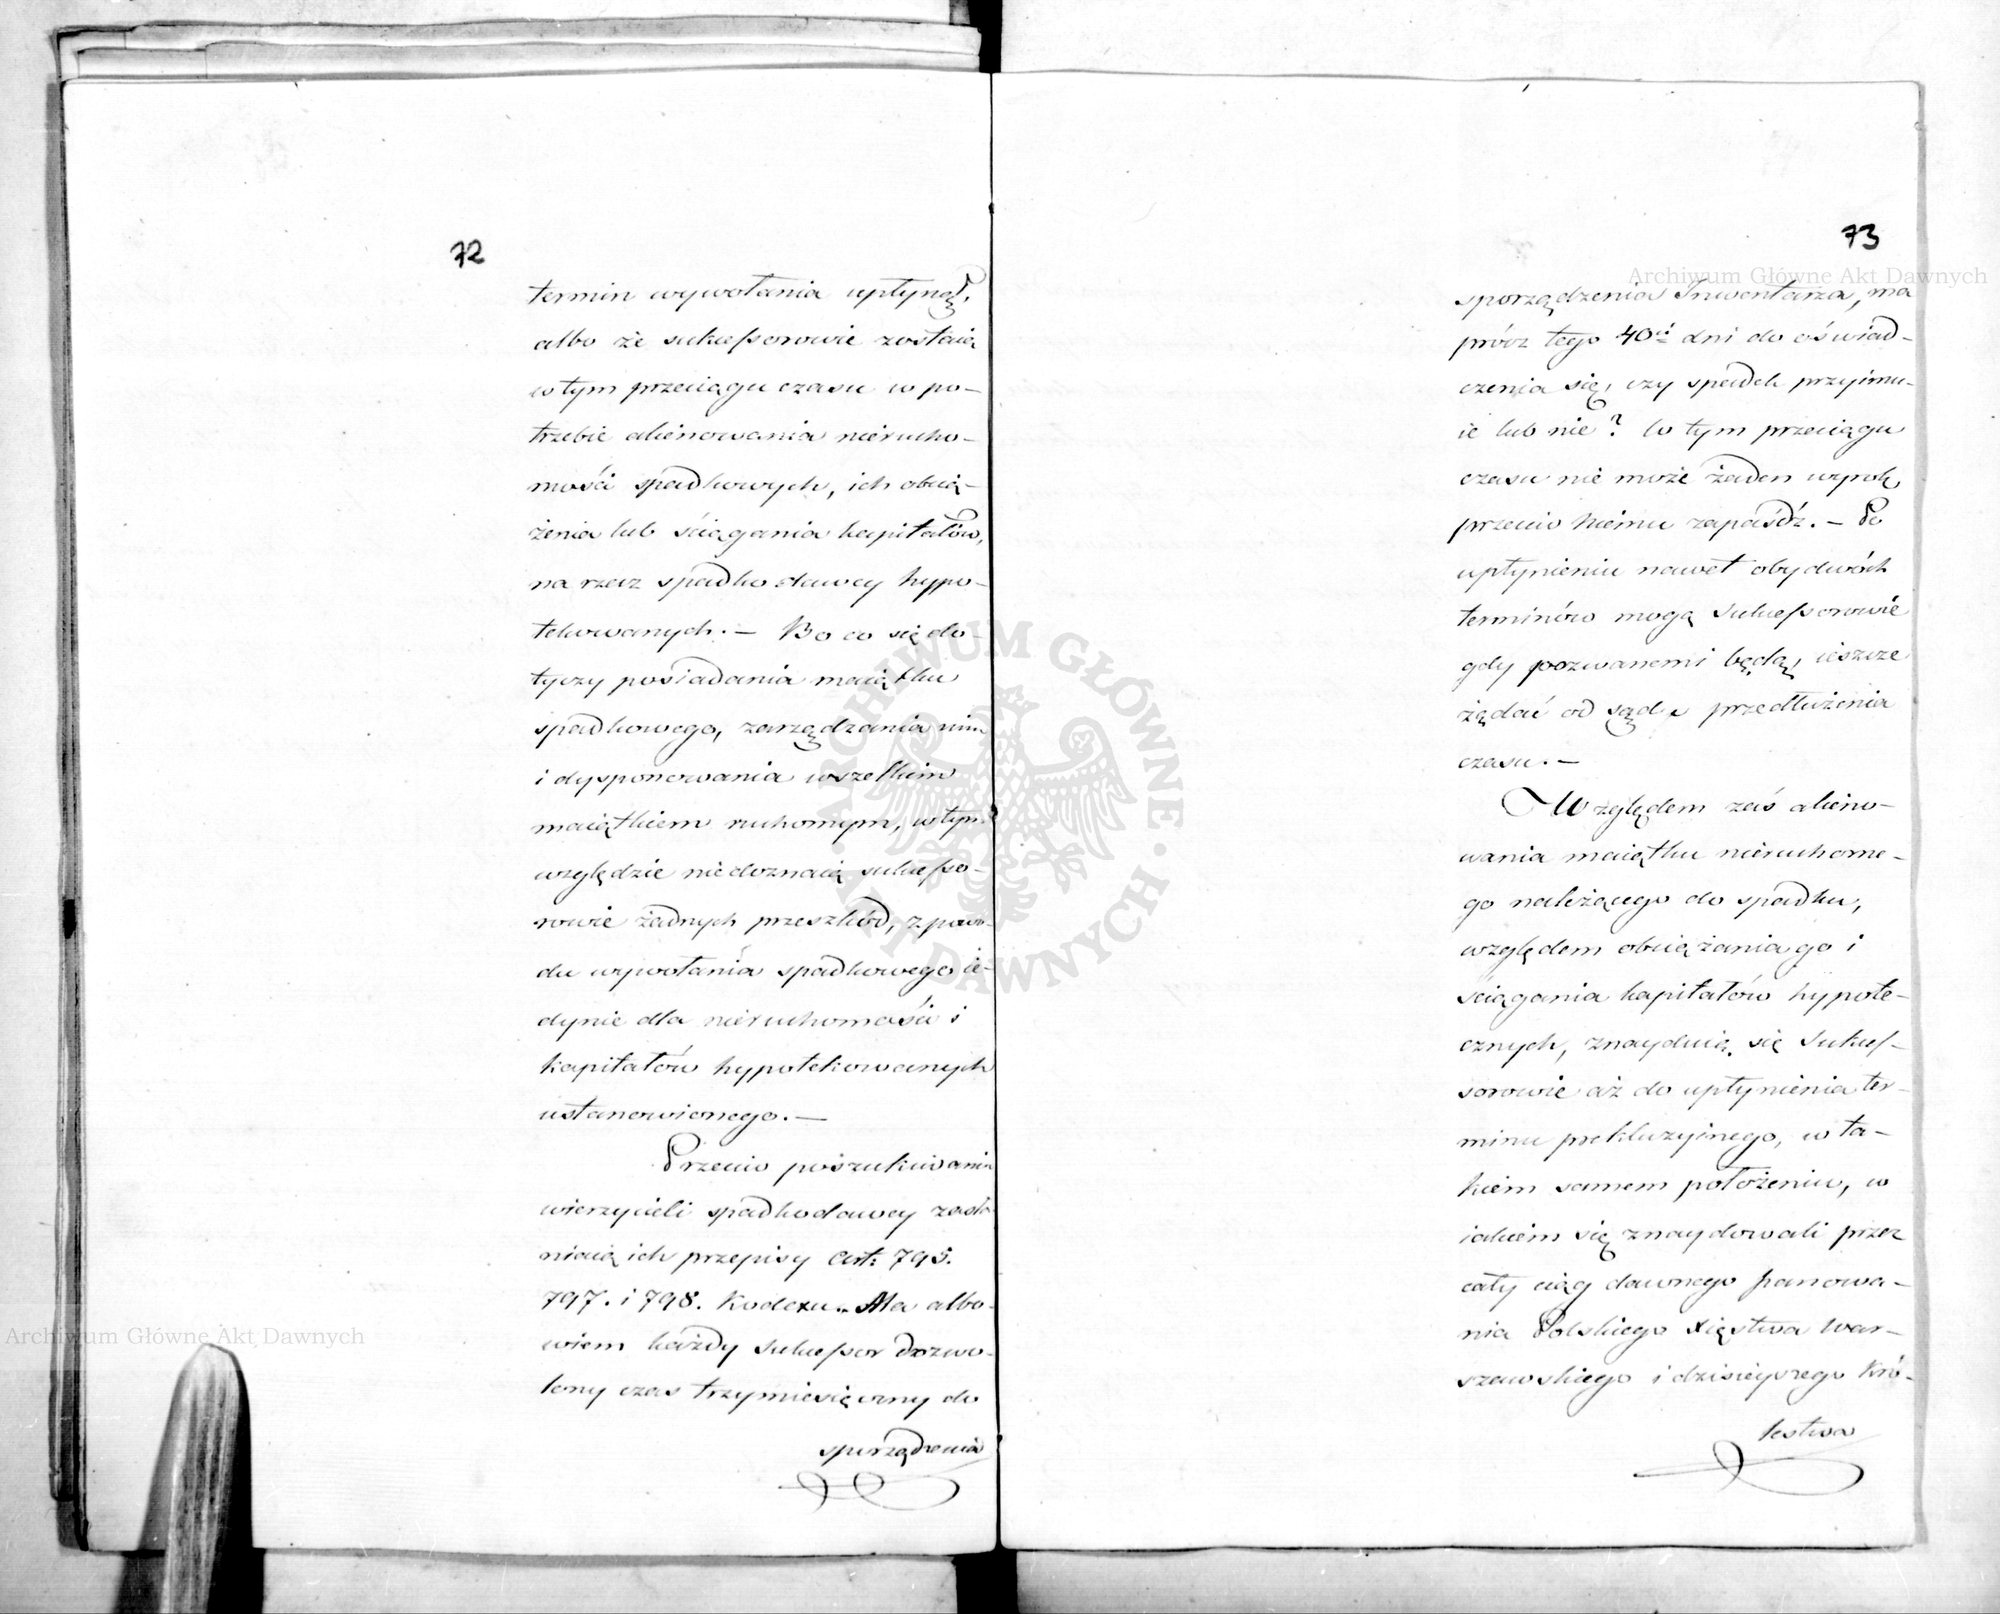 72
termin wywołania upłynął,
albo że sukcessorowie zostaią
w tym przeciągu czasu w po-
trzebie alienowania nierucho-
mości spadkowych, ich obcią-
żenia lub ściągania kapitałów,
na rzecz spadkodawcy hypo-
tekowanych. — Bo co się do-
tyczy posiadania maiątku
spadkowego, zarządzania nim
i dysponowania wszelkim
maiątkiem ruchomym, w tym
względzie niedoznaią sukcesso-
rowie żadnych przeszkód, z powo-
du wywołania spadkowego ie-
dynie dla nieruchomości i
kapitałów hypotekowanych
ustanowionego. —
Przeciw poszukiwania
wierzycieli spadkodawcy zasła-
niaią ich przepisy Art. 795.
797. i 798. Kodexu. Ma albo-
wiem każdy sukcessor dozwo-
lony czas trzymiesięczny do
sporządzenia
73
sporządzenia Inwentarza, ma
prócz tego 40ci dni do oświad-
czenia się, czy spadek przyimu-
ie lub nie? W tym przeciągu
czasu nie może żaden wyrok
przeciw niemu zapaśdź. — Po
upłynieniu nawet obydwóch
terminów mogą sukcessorowie
gdy pozwanemi będą, ieszcze
żądać od sądu przedłużenia
czasu. —
Względem zaś alieno-
wania maiątku nieruchome-
go należącego do spadku,
względem obciążania go i
ściągania kapitałów hypote-
cznych, znayduią się sukces-
sorowie aż do upłynienia ter-
minu prekluzyinego, w ta-
kiem samem położeniu, w
iakiem się znaydowali przez
cały ciąg dawnego panowa-
nia Polskiego Xięstwa War-
szawskiego i dzisieyszego Kró-
lestwa
Archiwum Główne Akt Dawnych
Archiwum Główne Akt Dawnych
ARCHIWUM GŁÓWNE AKT DAWNYCH